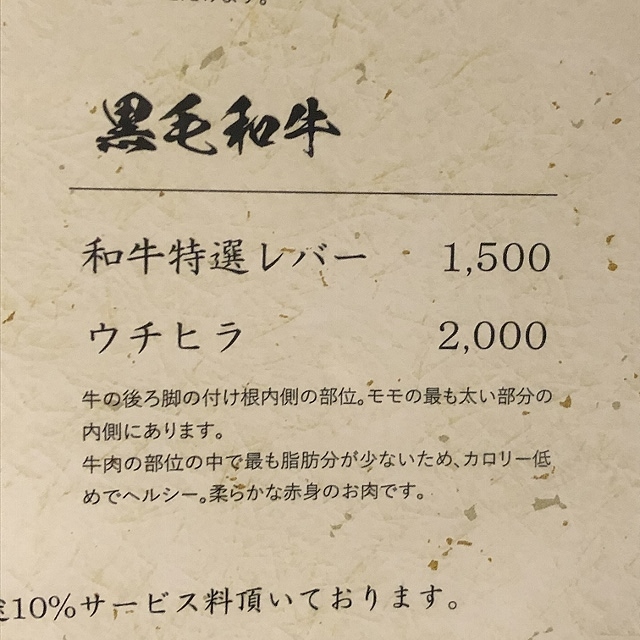 黒毛和牛
和牛特選レバー 1,500
ウチヒラ 2,000
牛の後ろ脚の付け根内側の部位。モモの最も太い部分の
内側にあります。
牛肉の部位の中で最も脂肪分が少ないため、カロリー低
めでヘルシー。柔らかな赤身のお肉です。
10%サービス料頂いております。